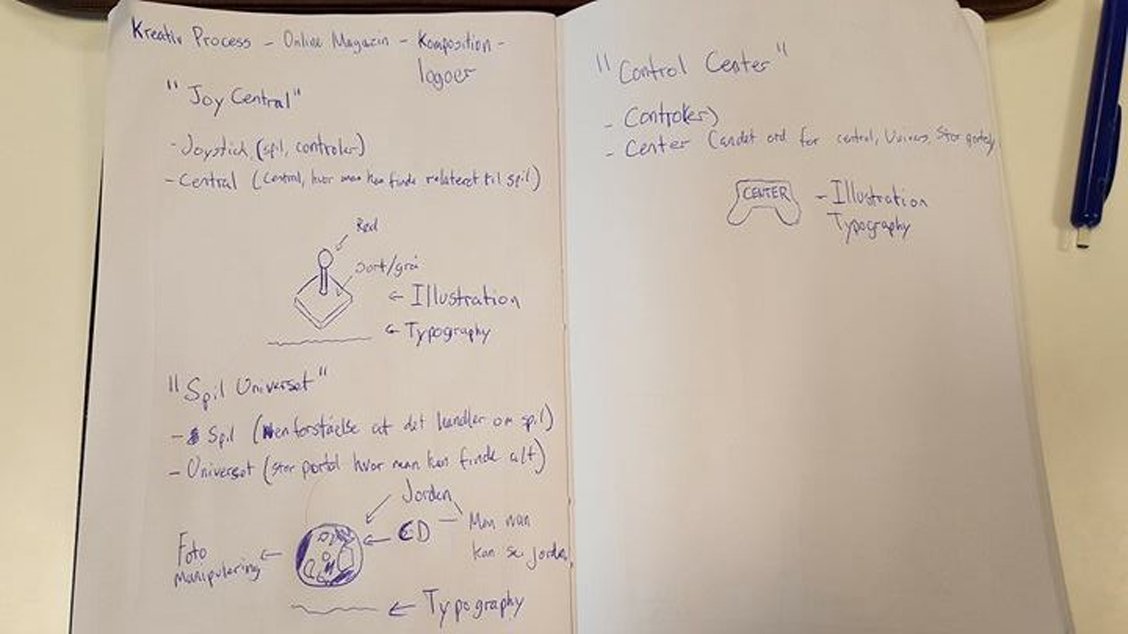 Kreativ Process - Online Magazin - Komposition -
logoer
"Joy Central"
- Joystick (spil, controler)
- Central (Central, hvor man kan finde relateret til spil)
Red
Sort/grå
← Illustration
← Typography
"Spil Universet"
- Spil (Nem forståelse at det handler om spil)
- Universet (stor portal hvor man kan finde alt)
Jorden
CD
Men man
kan se jorden
Foto
manipulering
← Typography
"Control Center"
- Controler)
- Center (andet ord for central, Univers, Stor portal)
CENTER
- Illustration
Typography